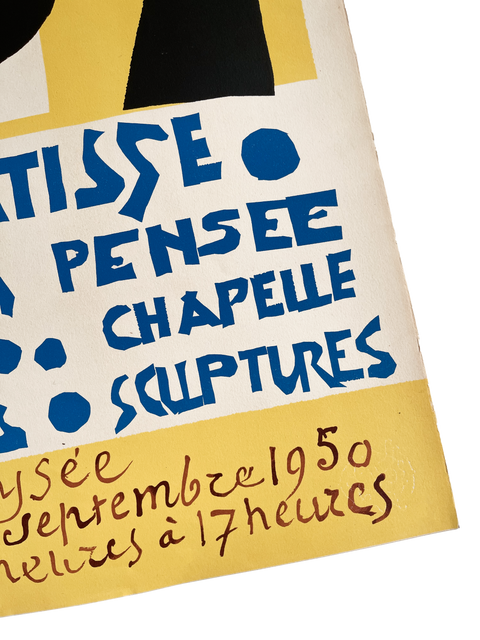 ATISSE
PENSEE
CHAPELLE
SCULPTURES
ysée
septembre 1950
heures à 17 heures